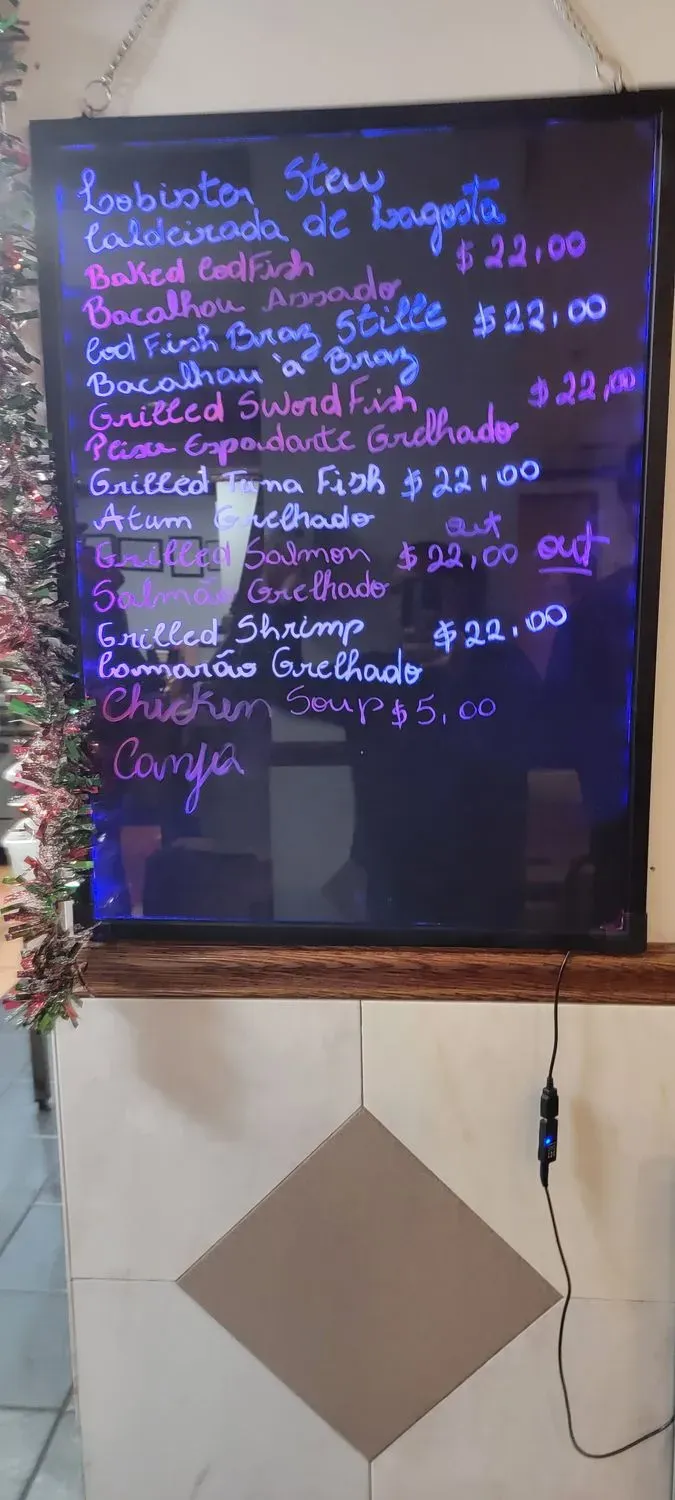 Lobister Stew
Caldeirada de Lagosta
Baked CodFish $22,00
Bacalhou Assado
Cod Fish Braz Stille $22,00
Bacalhau à Braz
Grilled SwordFish $22,00
Peixe Espadarte Grelhado
Grilled Tuna Fish $22,00
Atum Grelhado out
Grilled Salmon $22,00 out
Salmão Grelhado
Grilled Shrimp $22,00
Camarão Grelhado
Chicken Soup $5,00
Canja